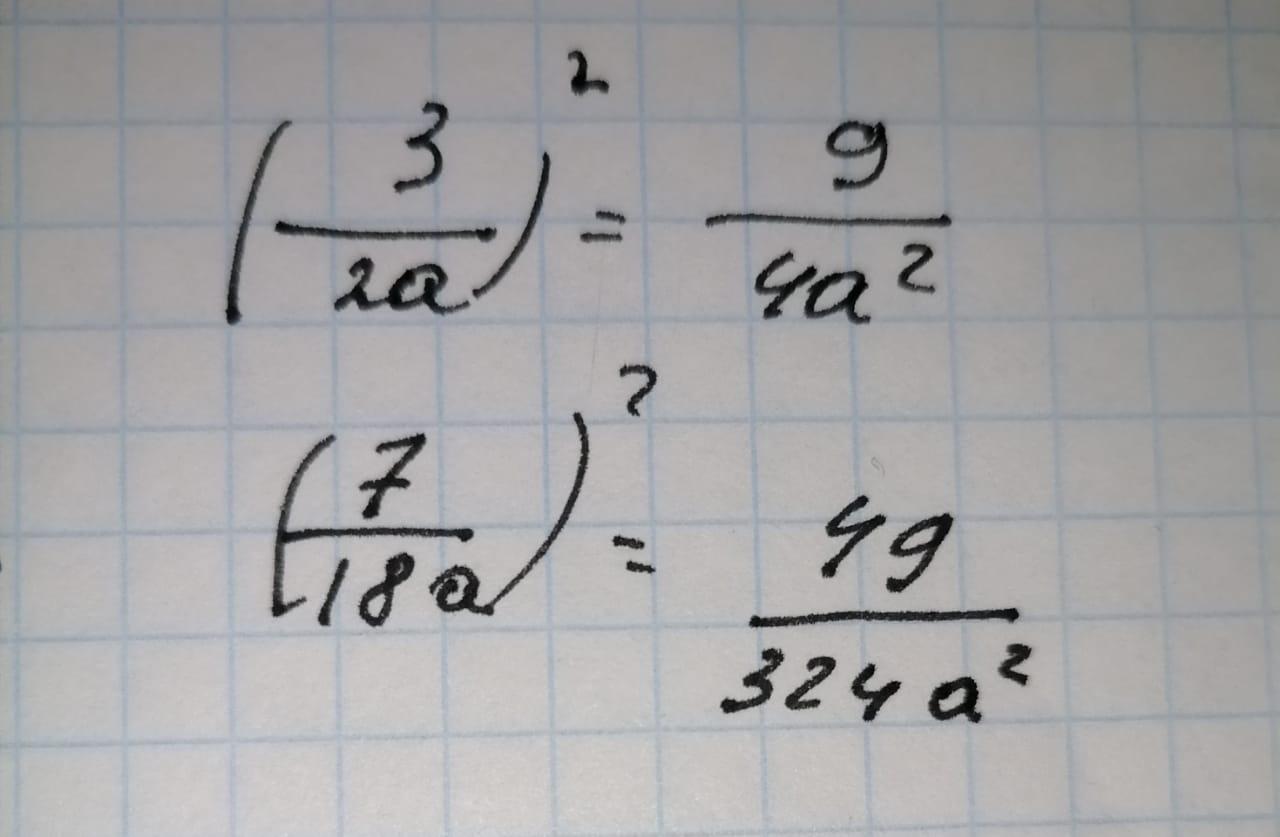 (3/2a)² = 9/4a²
(7/18a)² = 49/324a²